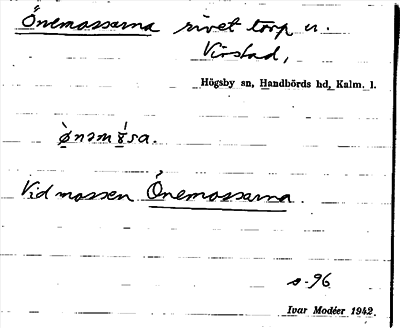 Önemossarna rivet torp u.
Virstad,
Högsby sn, Handbörds hd, Kalm. l.
ø̀nəmɤ́sa.
Vid mossen Önemossarna.
s. 96
Ivar Modéer 1942.